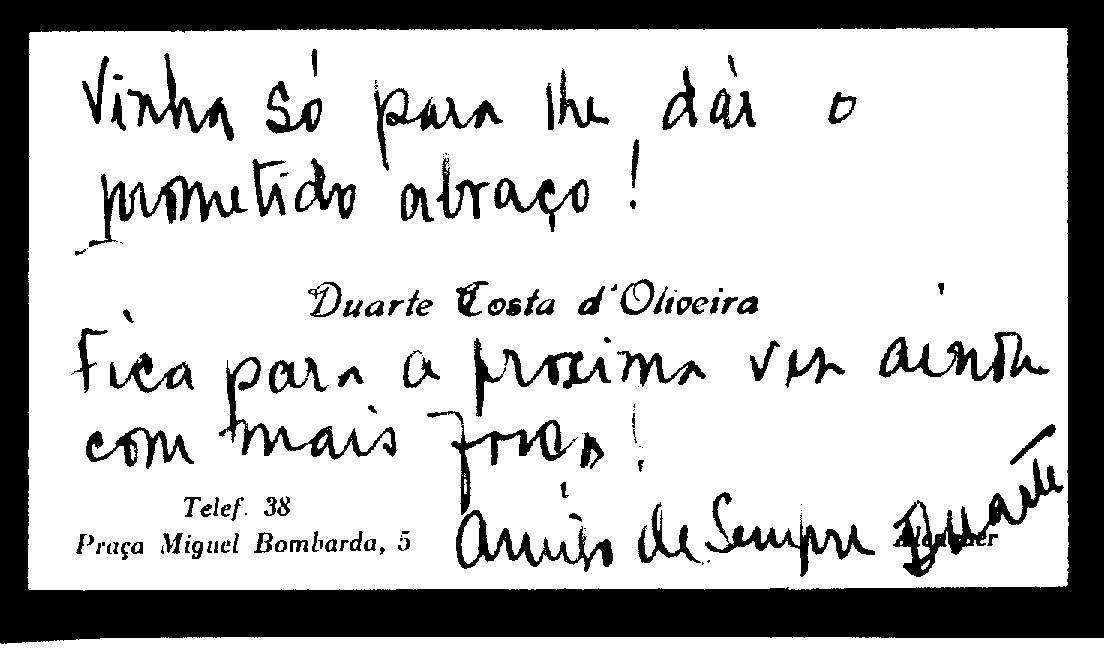 Vinha só para lhe dár o
prometido abraço!
Duarte Costa d'Oliveira
Fica para a proxima vez ainda
com mais força!
Telef. 38
Amigo de Sempre Duarte
Praça Miguel Bombarda, 5